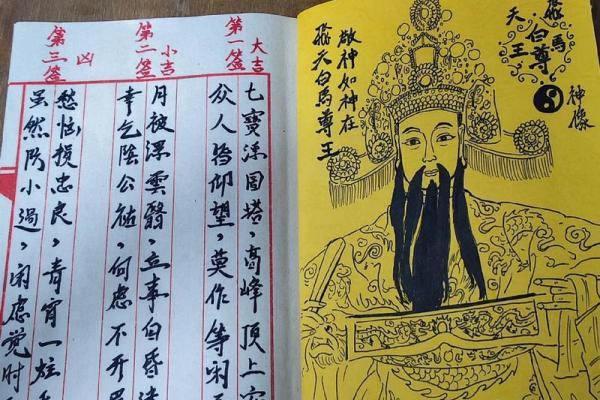 飛天白馬尊王
神像
敬神如神在
飛天白馬尊王
第一签 大吉
七寶浮图塔，高峰頂上
众人皆仰望，莫作等闲
第二签 小吉
月被浮雲翳，立事自昏
幸乞陰公祐，何虑不开
第三签 凶
愁恼损忠良，青宵一炷
虽然防小過，闲虑觉时